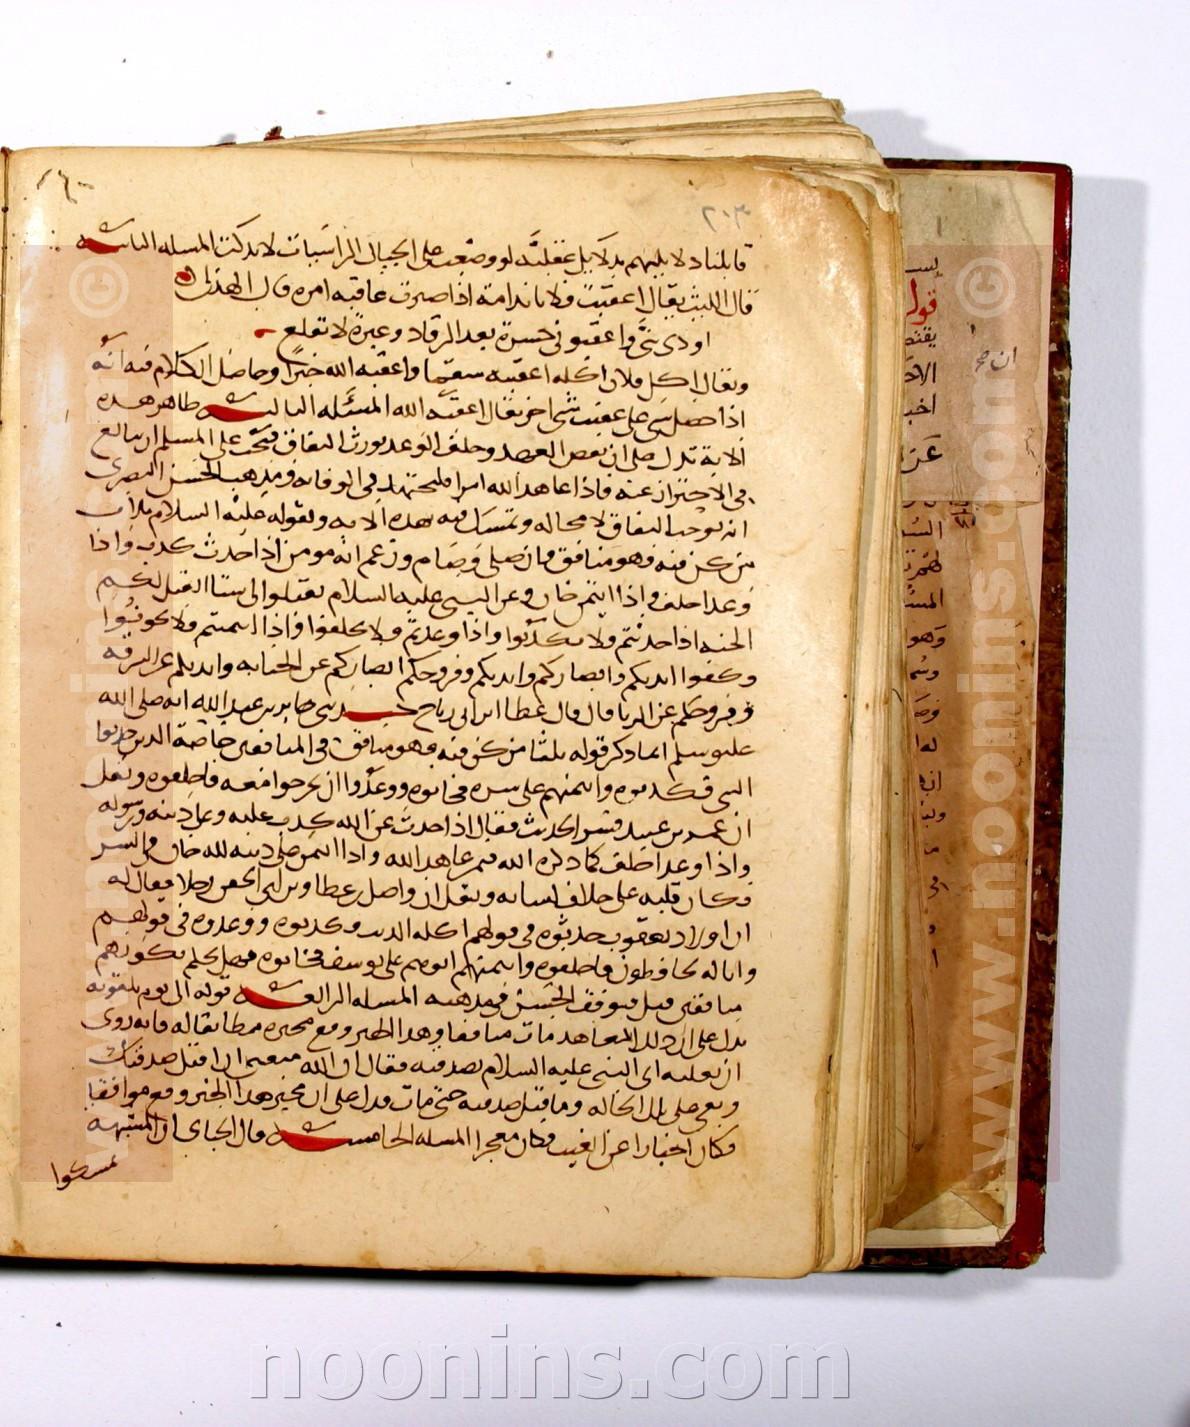 ٢٠٣
قابلناد لا يليهم بدلا بل عقليّة لو وضعت على الجبال الراسيات لاندكت المسله الثانيه
قال الليث يقال اعقبت فلانا ندامة اذا صيرت عاقبه امره قال الهذلى
اودى بنىّ واعقبونى حسرة بعد الرقاد وعبرة لا تقلع
ويقال اكل فلان اكله اعقبته سقما واعقبه الله خيرا وحاصل الكلام فيه انه
اذا حصل شى على عقيب شى اخر يقال اعقبه الله المسئله الثالثه ظاهر هذه
الاية تدل على ان نقض العهد وخلف الوعد يورث النفاق فيجب على المسلم ان يبالغ
فى الاحتراز عنه فاذا عاهد الله امرا فليجتهد فى الوفا به ومذهب الحسن البصرى
انه يوجب النفاق لا محاله وتمسك فيه بهذه الايه وبقوله عليه السلام ثلاث
من كن فيه فهو منافق وان صلى وصام وزعم انه مومن اذا حدث كذب واذا
وعد اخلف واذا ايتمن خان وعن النبى عليه السلام تقبلوا لى ستا اتقبل لكم
الجنه اذا حدثتم فلا تكذبوا واذا وعدتم فلا تخلفوا واذا ايتمنتم فلا تخونوا
وكفوا ايديكم وابصاركم وايديكم وفروجكم ابصاركم عن الخيانه وايديكم عن السرقه
وفروجكم عن الزنا قال قال عطا ابن ابى رباح حدثنى جابر بن عبد الله انه صلى الله
عليه وسلم انما ذكر قوله ثلثا من كن فيه فهو منافق فى المنافقين خاصة الذين حدثوا
النبى فكذبوه وايتمنهم على سره فخانوه ووعدوا ان يخرجوا معه فاخلفوه ونقل
ان عمرو بن عبيد فسر الحديث فقال اذا حدث عن الله كذب عليه وعلى دينه ورسوله
واذا وعد اخلف كما ذكره الله فيمن عاهد الله واذا ايتمن على دينه لله خان فى السر
فكان قلبه على خلاف لسانه ونقل ان واصل بن عطا وس الى الحسن رجلا فقال له
ان اولاد يعقوب حدثوه فى قولهم اكله الذيب وكذبوه ووعدوه فى قولهم
وانا له لحافظون فاخلفوه وايتمنهم ابوهم على يوسف فخانوه فهل يحكم بكونهم
منافقين قيل فتوقف الحسن فى مذهبه المسله الرابعه قوله الى يوم يلقونه
يدل على ان ذلك المعاهد مات منافقا وهذا الخبر وقع مخبره مطابقا له فانه روى
ان ثعلبه اتى النبى عليه السلام بصدقته فقال ان الله منعنى ان اقبل صدقتك
وبقى على تلك الحاله وما قبل صدقته حتى مات فدل على ان مخبر هذا الخبر وقع موافقا
فكان اخبارا عن الغيب فكان معجزا المسله الخامسه قال الجبائى ان المشبهة
تمسكوا
ان صح
www.noonins.com ©
www.noonins.com ©
noonins.com